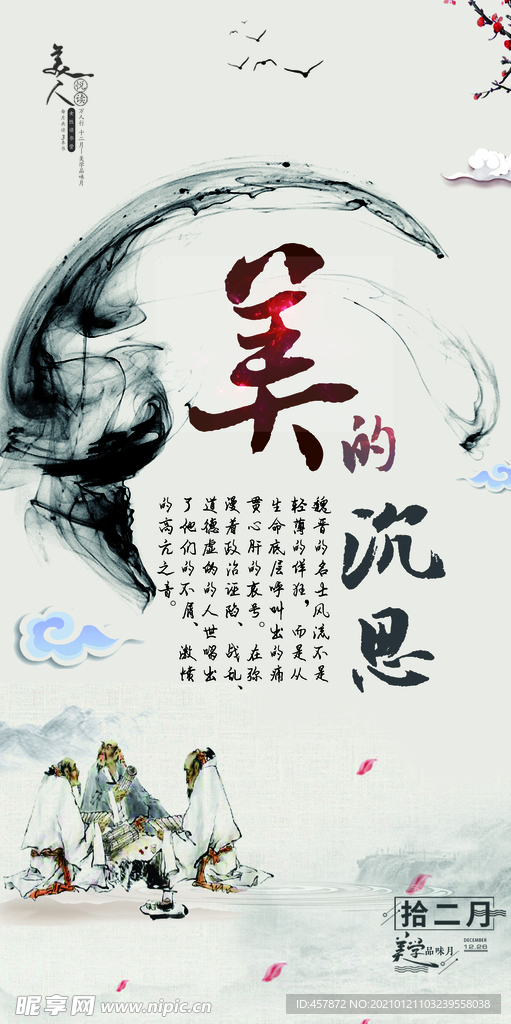 美人
悦读
女性读书营
每月共读3本书
万人行 十二月-美学品味月
美的沉思
魏晋的名士风流不是
轻薄的佯狂，而是从
生命底层呼叫出的痛
贯心肝的哀号。在弥
漫着政治诬陷、战乱、
道德虚伪的人世唱出
了他们的不屑、激愤
的高亢之音。
拾二月
美学品味月
DECEMBER
12.26
昵享网 www.nipic.cn
ID:457872 NO:20210121103239558038